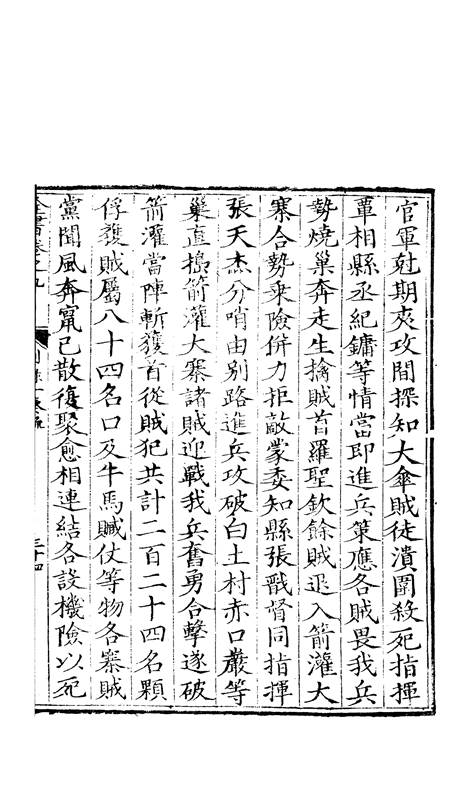 官軍尅期夾攻間探知大傘賊徒潰圍殺死指揮
覃相縣丞紀鏞等情當即進兵策應各賊畏我兵
勢燒巢奔走生擒賊首羅聖欽餘賊退入箭灌大
寨合勢乘險併力拒敵蒙委知縣張戩督同指揮
張天杰分哨由別路進兵攻破白土村赤口巖等
巢直搗箭灌大寨諸賊迎戰我兵奮勇合擊遂破
箭灌當陣斬獲首從賊犯共計二百二十四名顆
俘獲賊屬八十四名口及牛馬贓仗等物各寨賊
黨聞風奔竄已散復聚愈相連結各設機險以死
全書卷之九
三十四